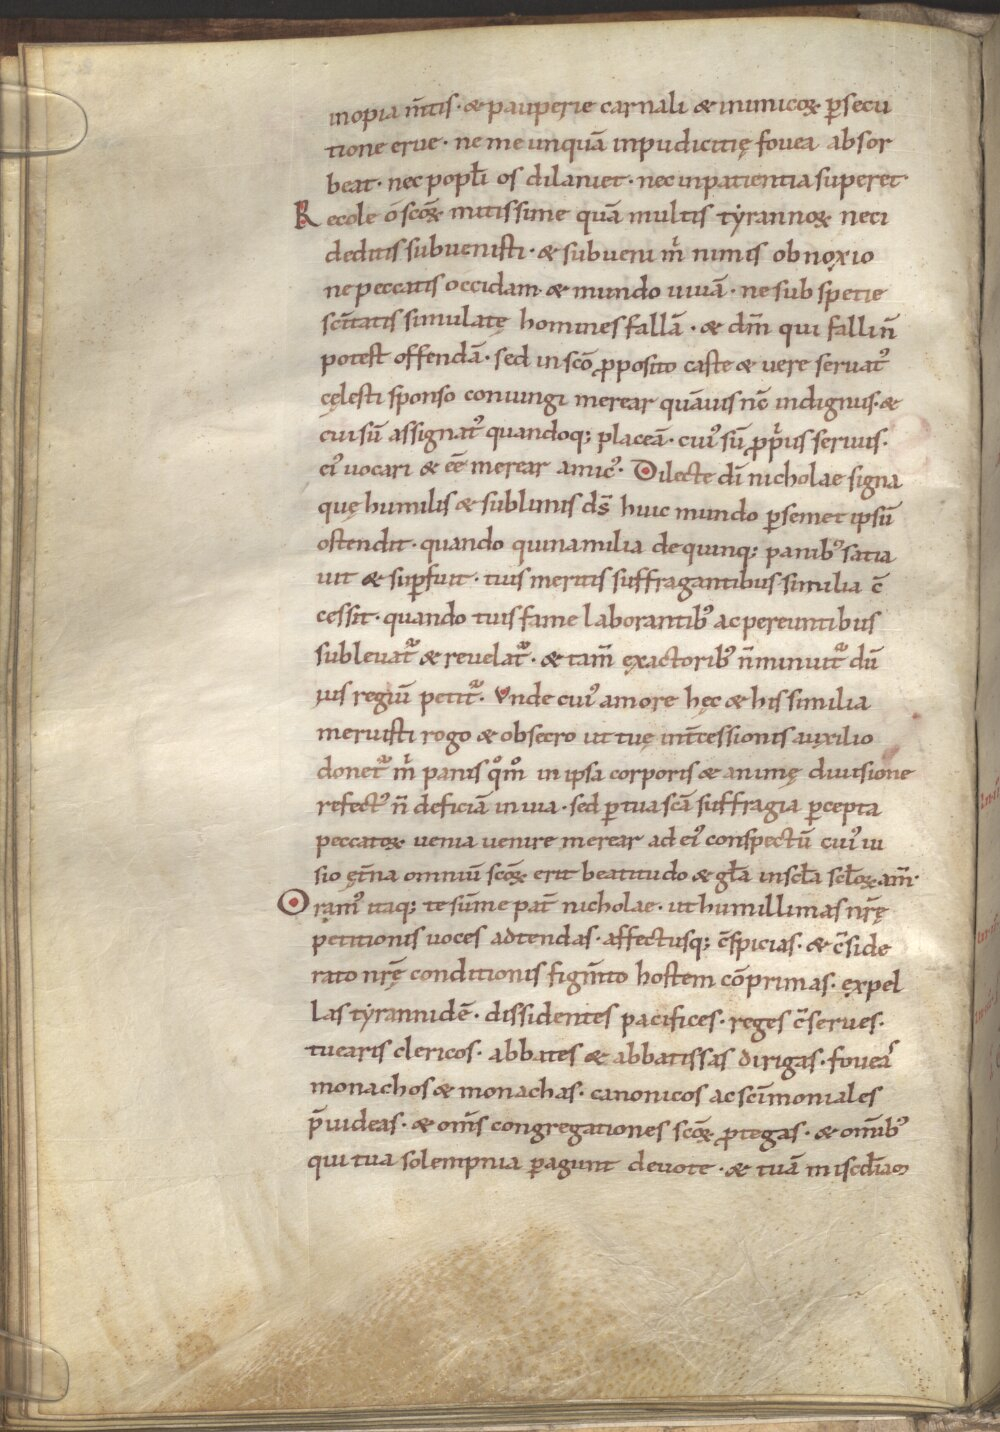 inopia m̅tis· & pauperie carnali & inimicoꝝ p̲secu
tione erue· ne me unquā inpudicitię fouea absor
beat· nec popl̅i os dilaniet· nec inpatientia superet·
Recole o sc̅oꝝ mitissime quā multis tyrannoꝝ neci
deditis subuenisti· & subueni m̅ nimis obnoxio
ne peccatis occidam· & mundo uiuā· ne sub spetie
sc̅itatis simulatę homines fallā· & dm̅ qui falli n̅
potest offendā· sed in sc̅o ꝓposito caste & uere seruatꝰ
cęlesti sponso coniungi merear quāuis nc̅ indignus· &
cui sū assignatꝰ quandoq; placeā· cuiꝰ sū ꝓpriꝰ seruus·
eiꝰ uocari & ee̅ merear amicꝰ· Dilecte dı̅ nicholae signa
quę humilis & sublimis ds̅ huic mundo ꝑsemet ipsū
ostendit· quando quina milia de quinq; panibꝰ satia
uit & suꝑfuit· tuis meritis suffragantibus similia c̅
cessit· quando tuis fame laborantibꝰ ac pereuntibus
subleuatᷣ & reuelatᷣ· & tam̅ exactoribꝰ n̅ minuitᷣ dū
ius regiū petitᷣ· Vnde cuiꝰ amore hęc & his similia
meruisti rogo & obsecro ut tuę int̅cessionis auxilio
donetᷣ m̅ panis qͦmͦ in ipsa corporis & animę diuisione
refectꝰ n̅ deficiā in uia· sed ꝑ tua sc̅a suffragia ꝑcepta
peccatoꝝ uenia uenire merear ad eiꝰ conspectū cuiꝰ ui
sio ęt̅na omniū sc̅oꝝ erit beatitudo & gl̅a in scl̅a scl̅oꝝ am̅·
Oramꝰ itaq; te sūme pat̅ nicholae· ut humillimas nr̅ę
petitionis uoces adtendas· affectusq; c̅spicias· & c̅side
rato nr̅ę conditionis figm̅to hostem cōprimas· expel
las tyrannidē· dissidentes pacifices· reges c̅serues·
tuearis clericos· abbates & abbatissas dirigas· foueas
monachos & monachas· canonicos ac sc̅imoniales
p̅uideas· & om̅s congregationes sc̅oꝝ ꝓtegas· & om̅ibꝰ
qui tua solempnia ꝑagunt deuote· & tuā misc̅diam